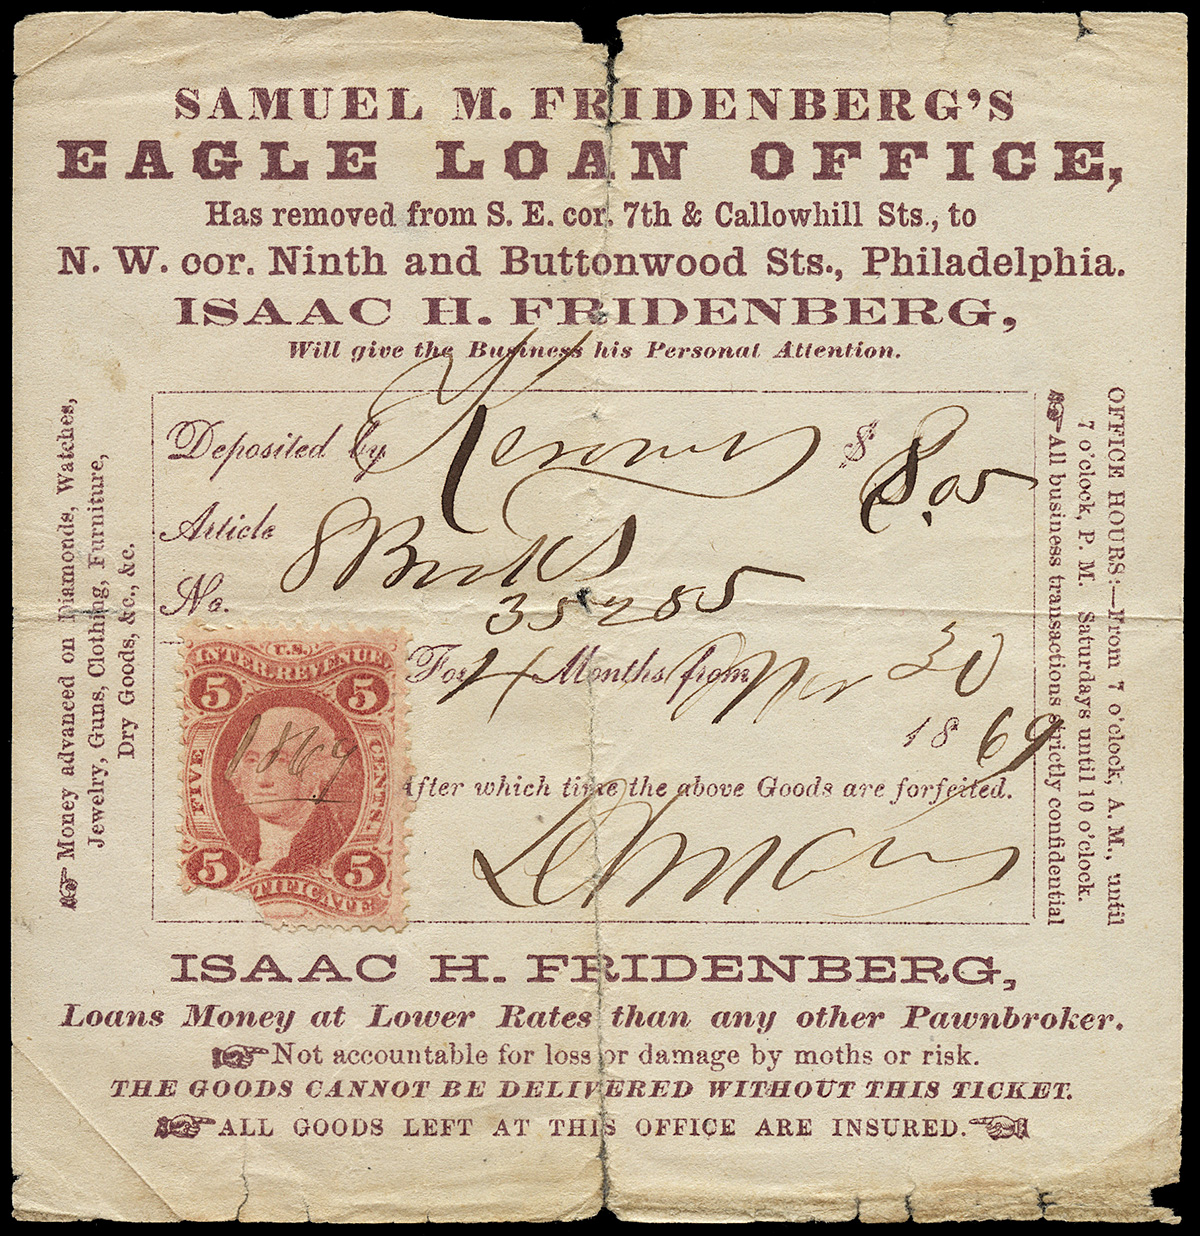 SAMUEL M. FRIDENBERG'S
EAGLE LOAN OFFICE,
Has removed from S. E. cor. 7th & Callowhill Sts., to
N. W. cor. Ninth and Buttonwood Sts., Philadelphia.
ISAAC H. FRIDENBERG,
Will give the Business his Personal Attention.
Money advanced on Diamonds, Watches,
Jewelry, Guns, Clothing, Furniture,
Dry Goods, &c., &c.
Deposited by $ 8.05
Article
No. 35285
For 4 Months from Nov 30
1869
After which time the above Goods are forfeited.
U.S.
INTER. REVENUE
5 5
FIVE CENTS.
1869
5 5
TIFICATE
OFFICE HOURS:—From 7 o'clock, A. M., until
7 o'clock, P. M. Saturdays until 10 o'clock.
All business transactions strictly confidential
ISAAC H. FRIDENBERG,
Loans Money at Lower Rates than any other Pawnbroker.
Not accountable for loss or damage by moths or risk.
THE GOODS CANNOT BE DELIVERED WITHOUT THIS TICKET.
ALL GOODS LEFT AT THIS OFFICE ARE INSURED.